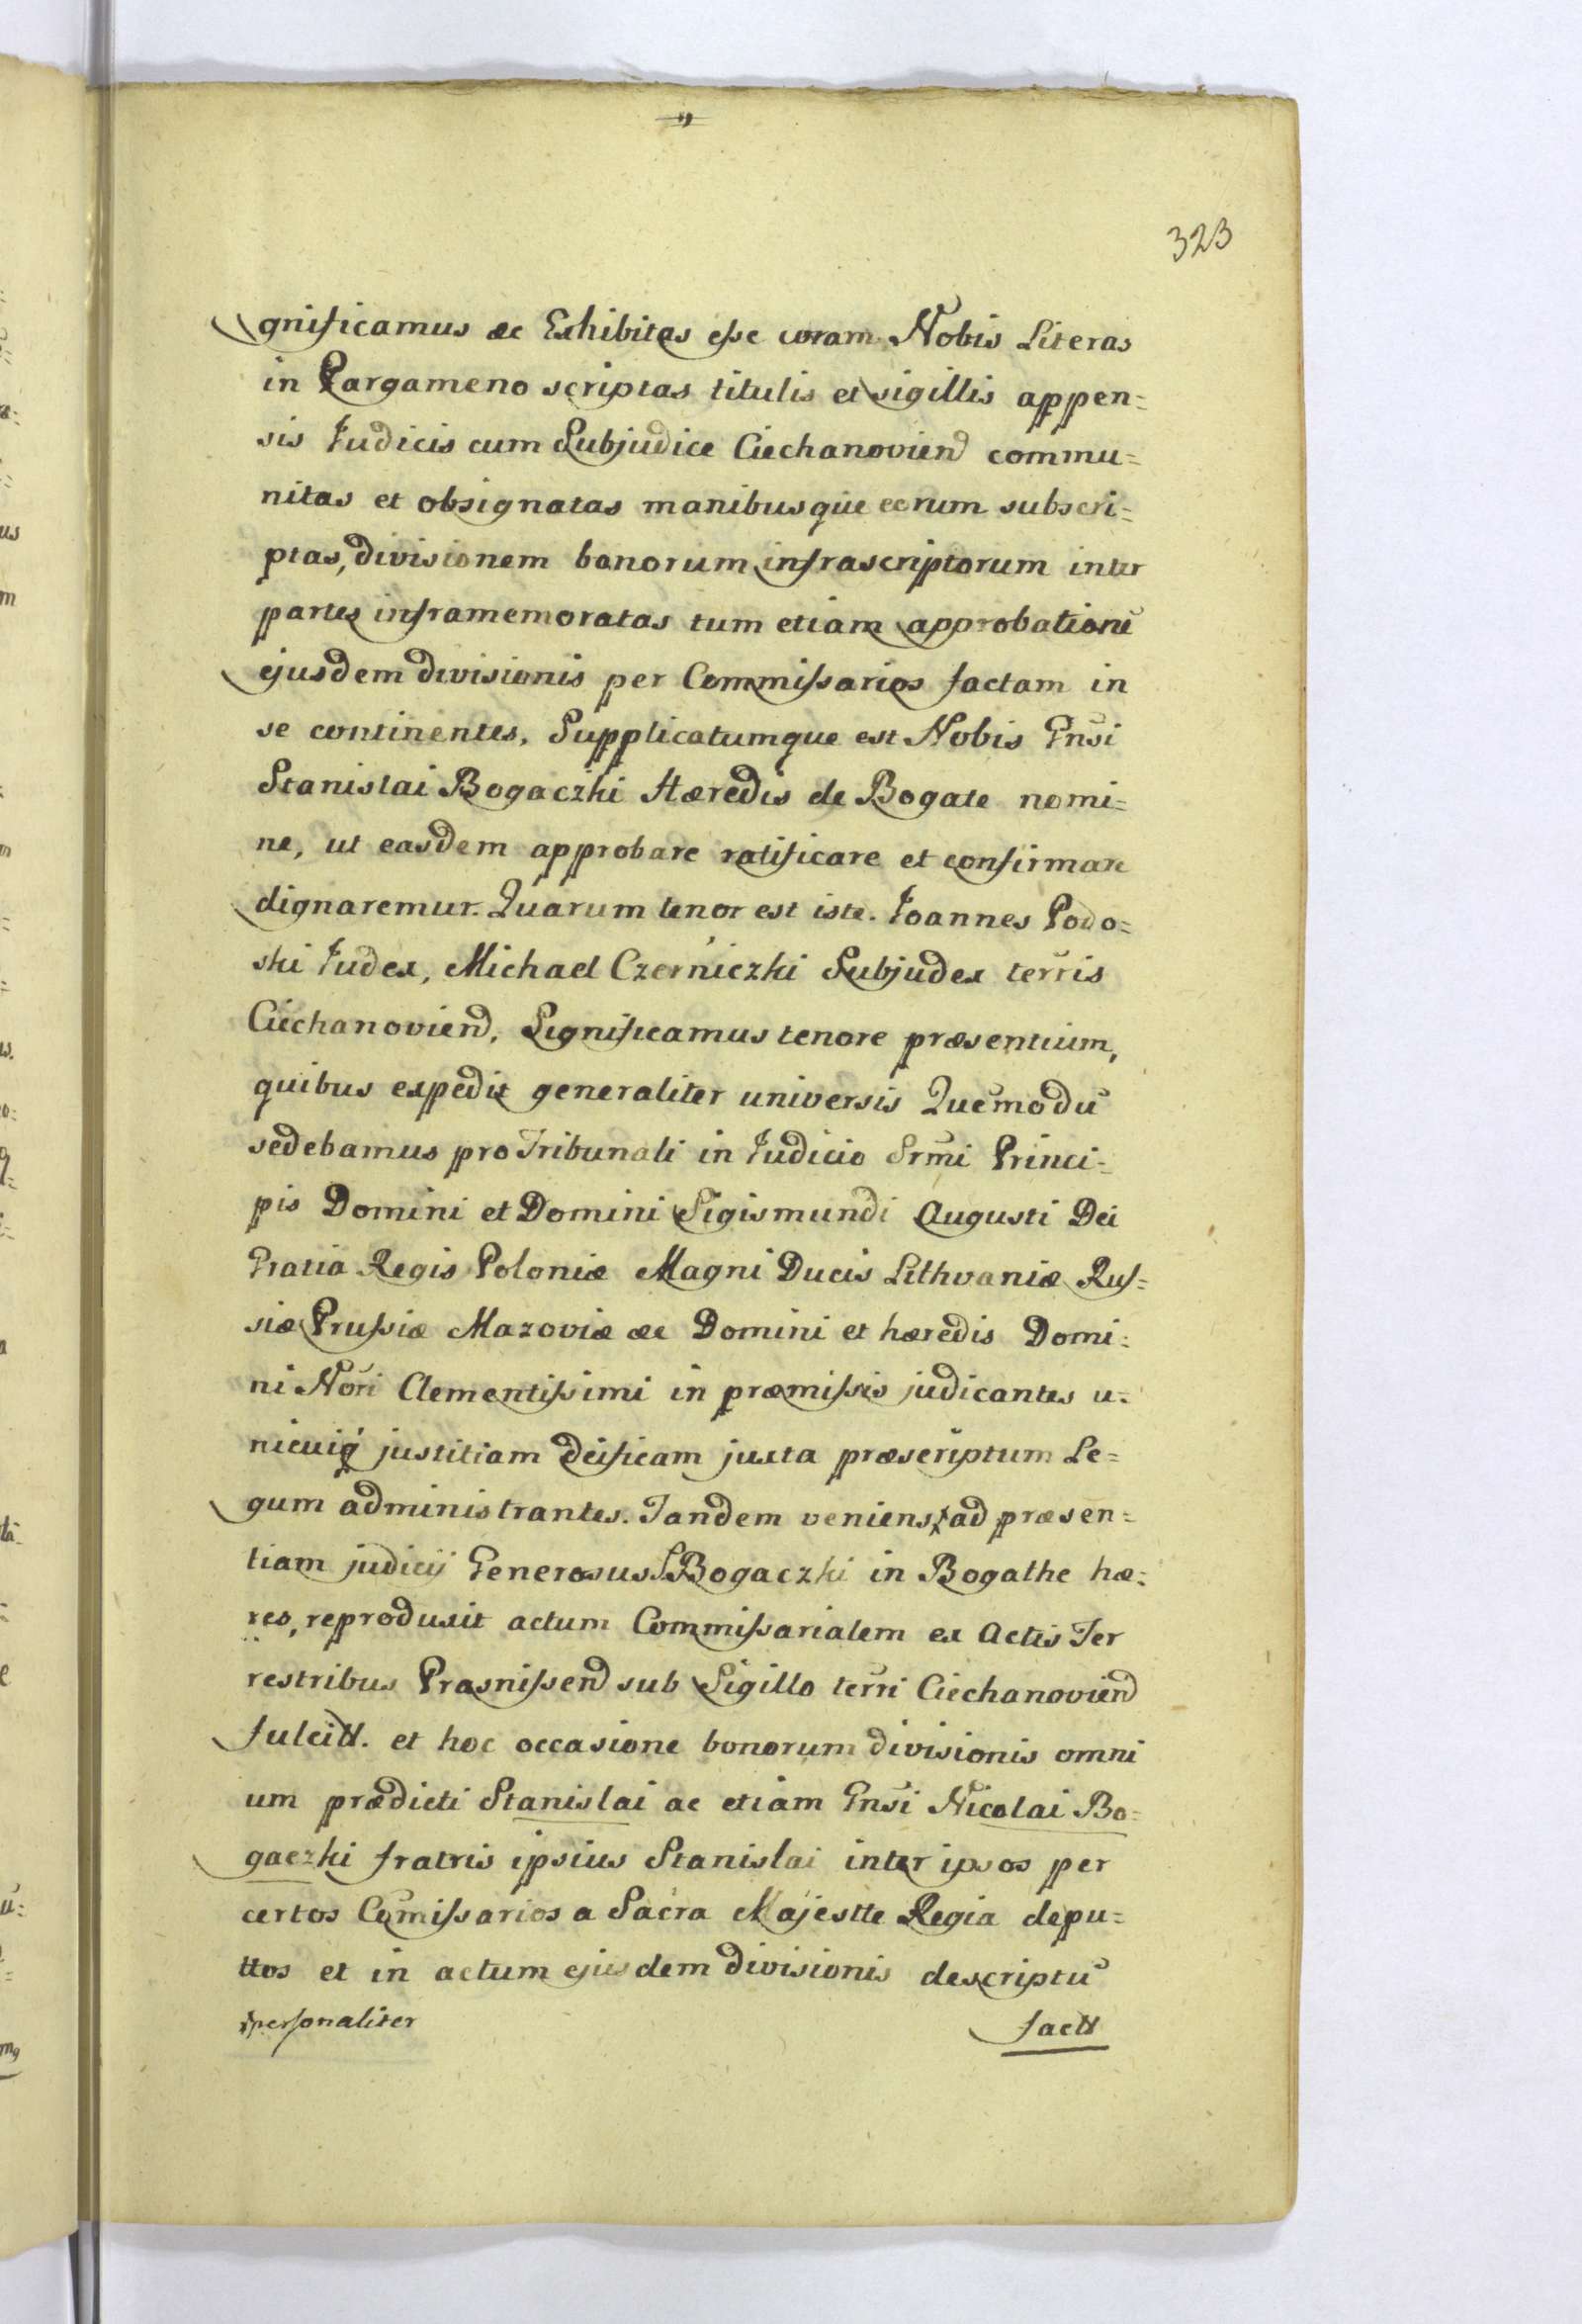 323
gnificamus &c Exhibitas esse coram Nobis Literas
in Pargameno scriptas titulis et sigillis appen=
sis Judicis cum Subjudice Ciechanovien̄ commu=
nitas et obsignatas manibusque eorum subscri=
ptas, divisionem bonorum infrascriptorum inter
partes inframemoratas tum etiam approbationē
ejusdem divisionis per Commissarios factam in
se continentes, Supplicatumque est Nobis Gn̄si
Stanislai Bogaczki Hæredis de Bogate nomi=
ne, ut easdem approbare ratificare et confirmare
dignaremur. Quarum tenor est iste. Joannes Podo=
ski Judex, Michael Czerniczki Subjudex terr̄is
Ciechanovien̄, Significamus tenore præsentium,
quibus expedit generaliter universis Quēmodū
sedebamus pro Tribunali in Judicio Srm̄i Princi=
pis Domini et Domini Sigismundi Augusti Dei
Gratia Regis Poloniæ Magni Ducis Lithvaniæ Rus=
siæ Prussiæ Mazoviæ &c Domini et hæredis Domi=
ni Nōri Clementissimi in præmissis judicantes u=
nicuiq́ justitiam deificam juxta præscriptum Le=
gum administrantes. Tandem veniens ad præsen=
tiam judicij Generosus S. Bogaczki in Bogathe hæ=
res, reproduxit actum Commissarialem ex Actis Ter
restribus Prasnissen̄ sub Sigillo terr̄i Ciechanovien̄
fulcitt. et hoc occasione bonorum divisionis omni
um prædicti Stanislai ac etiam Gn̄si Nicolai Bo=
gaczki fratris ipsius Stanislai inter ipsos per
certos Com̄issarios a Sacra Majestte Regia depu=
ttos et in actum ejusdem divisionis descriptū
personaliter factt